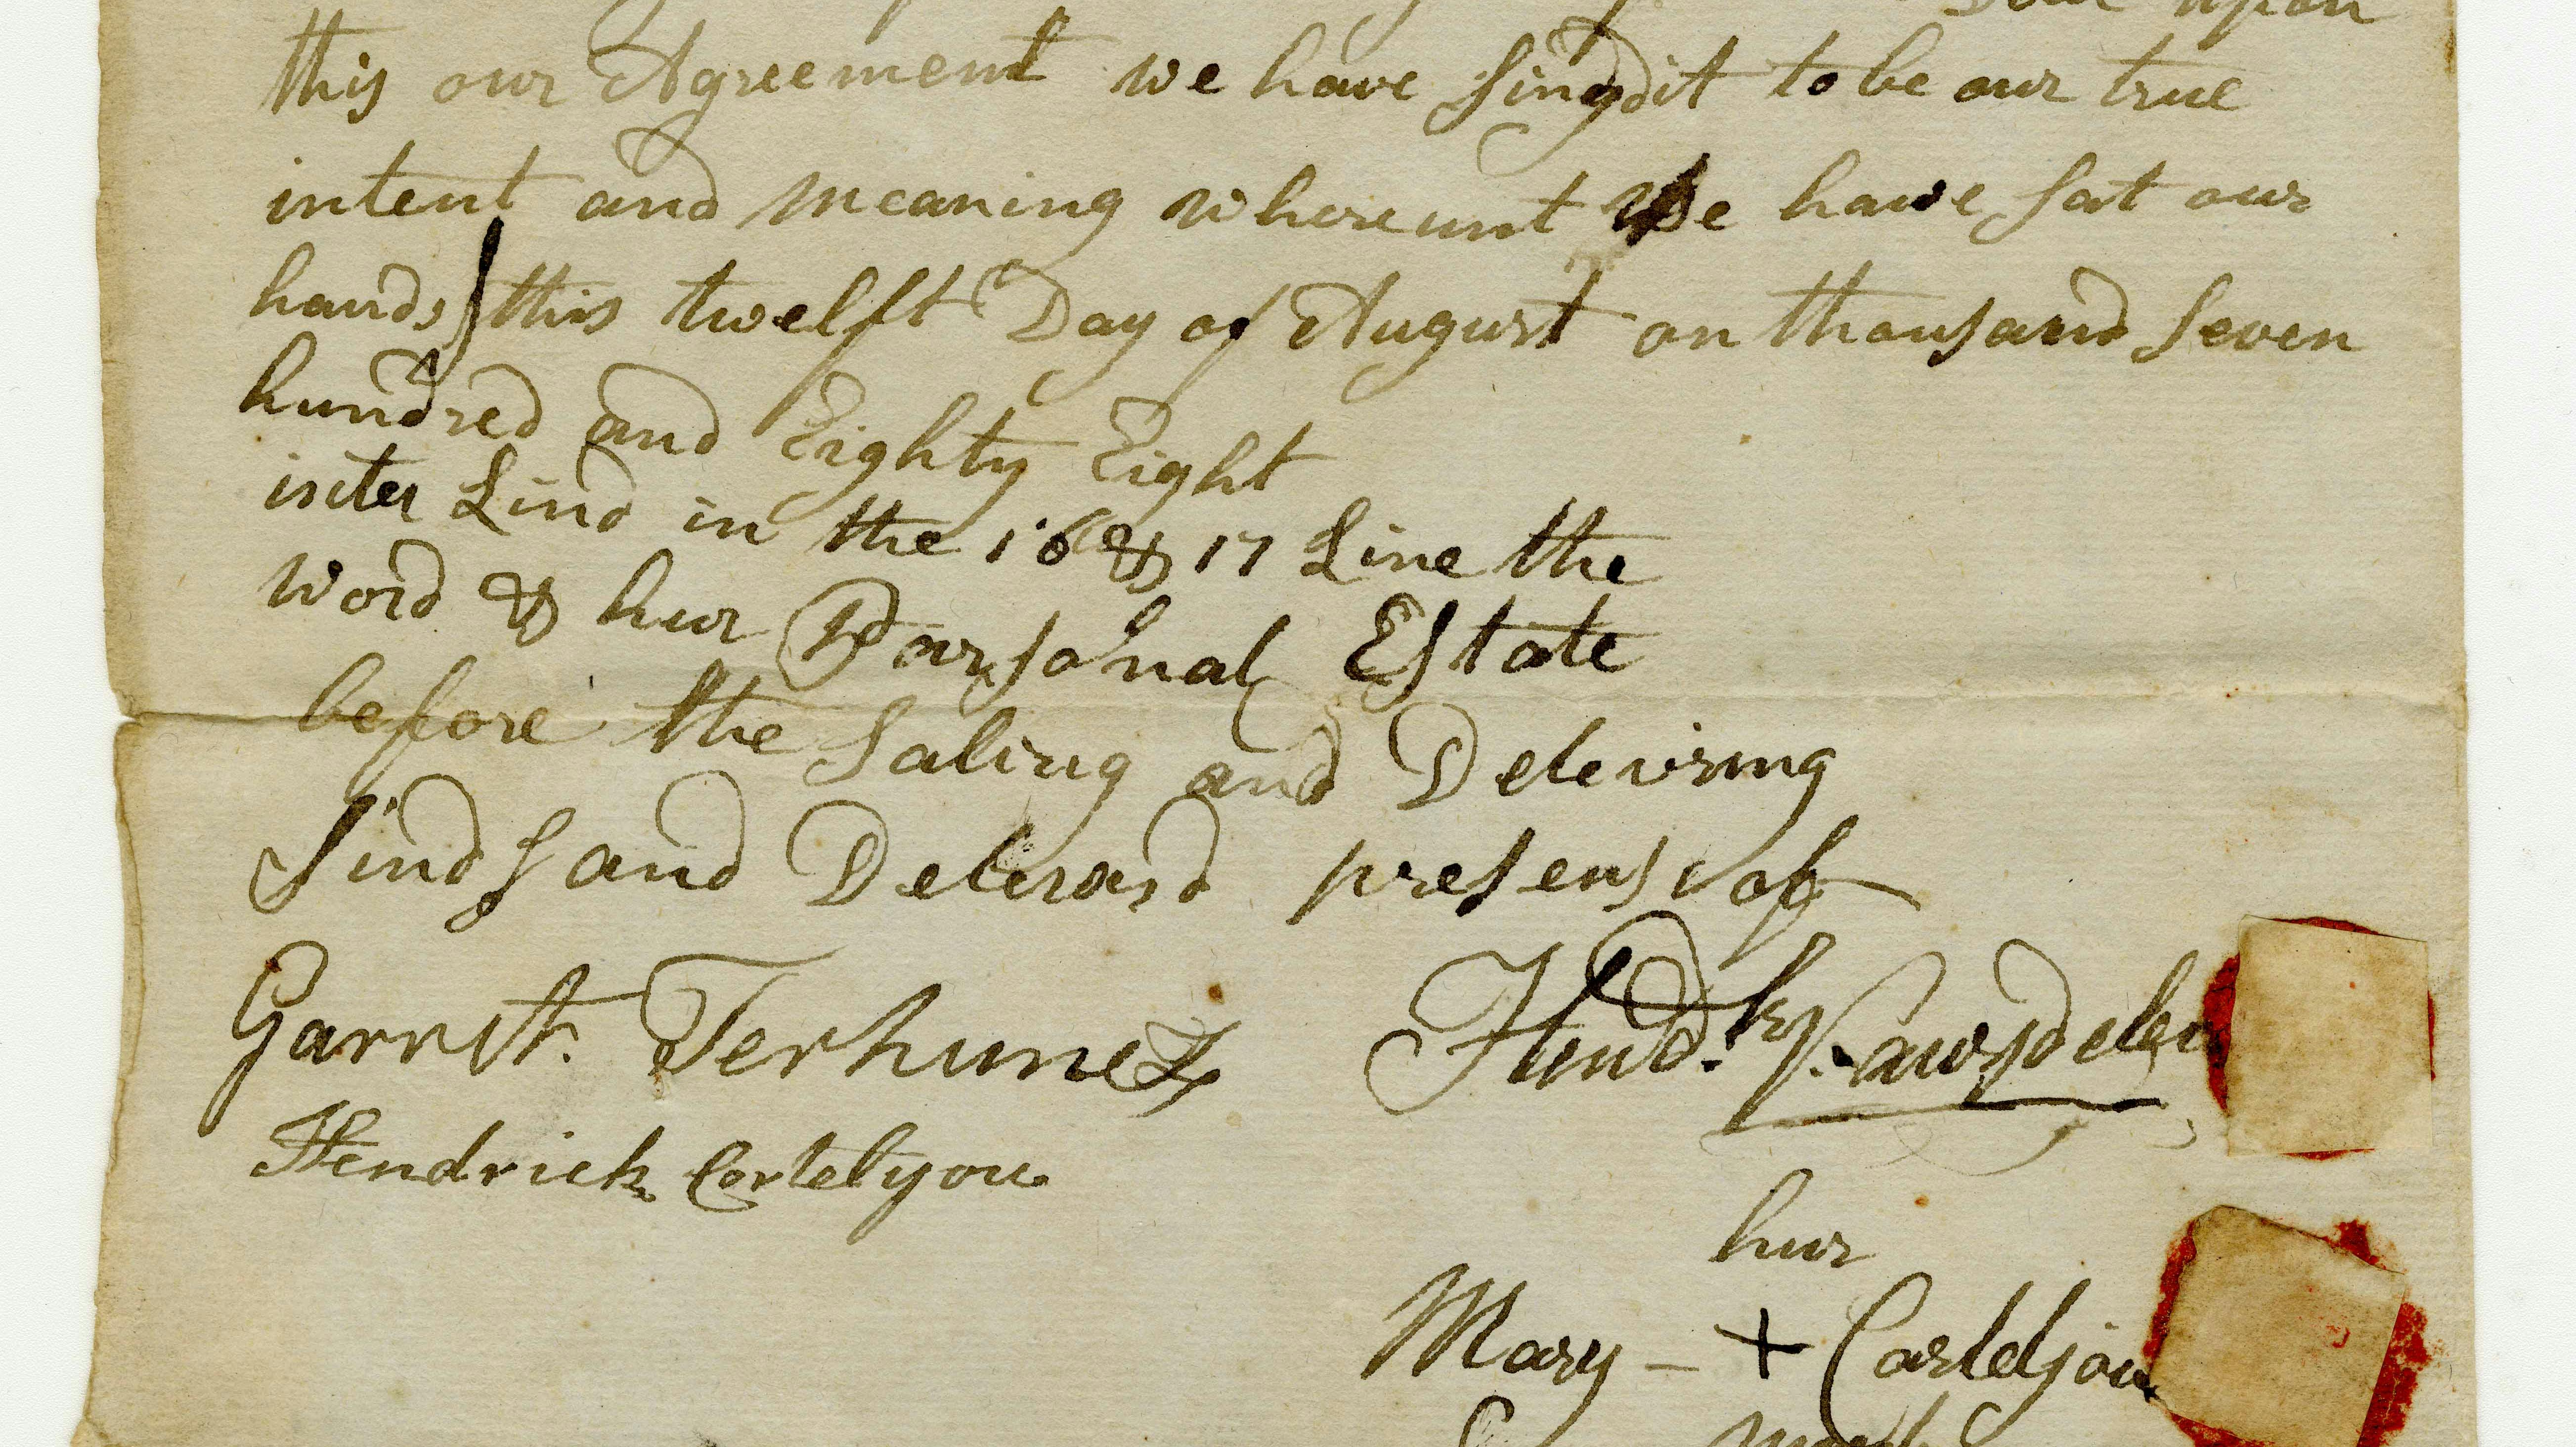 upon
this our Agreement we have singd it to be our true
intent and meaning whereunt We have sat our
hands this twelft Day of August on thousand seven
hundred and Eighty Eight
inter Lind in the 16 & 17 Line the
word & hur Parsonal Estate
before the Saling and Deleviring
Sind S and Deleverd presens of
Garrit. Terhune
Hendrick Cortelyou
Hend.k V.
hur
Mary - + Carteljou
mark